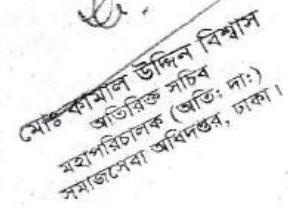 মোঃ কামাল উদ্দিন বিশ্বাস
অতিরিক্ত সচিব
মহাপরিচালক (অতি: দা:)
সমাজসেবা অধিদপ্তর, ঢাকা।